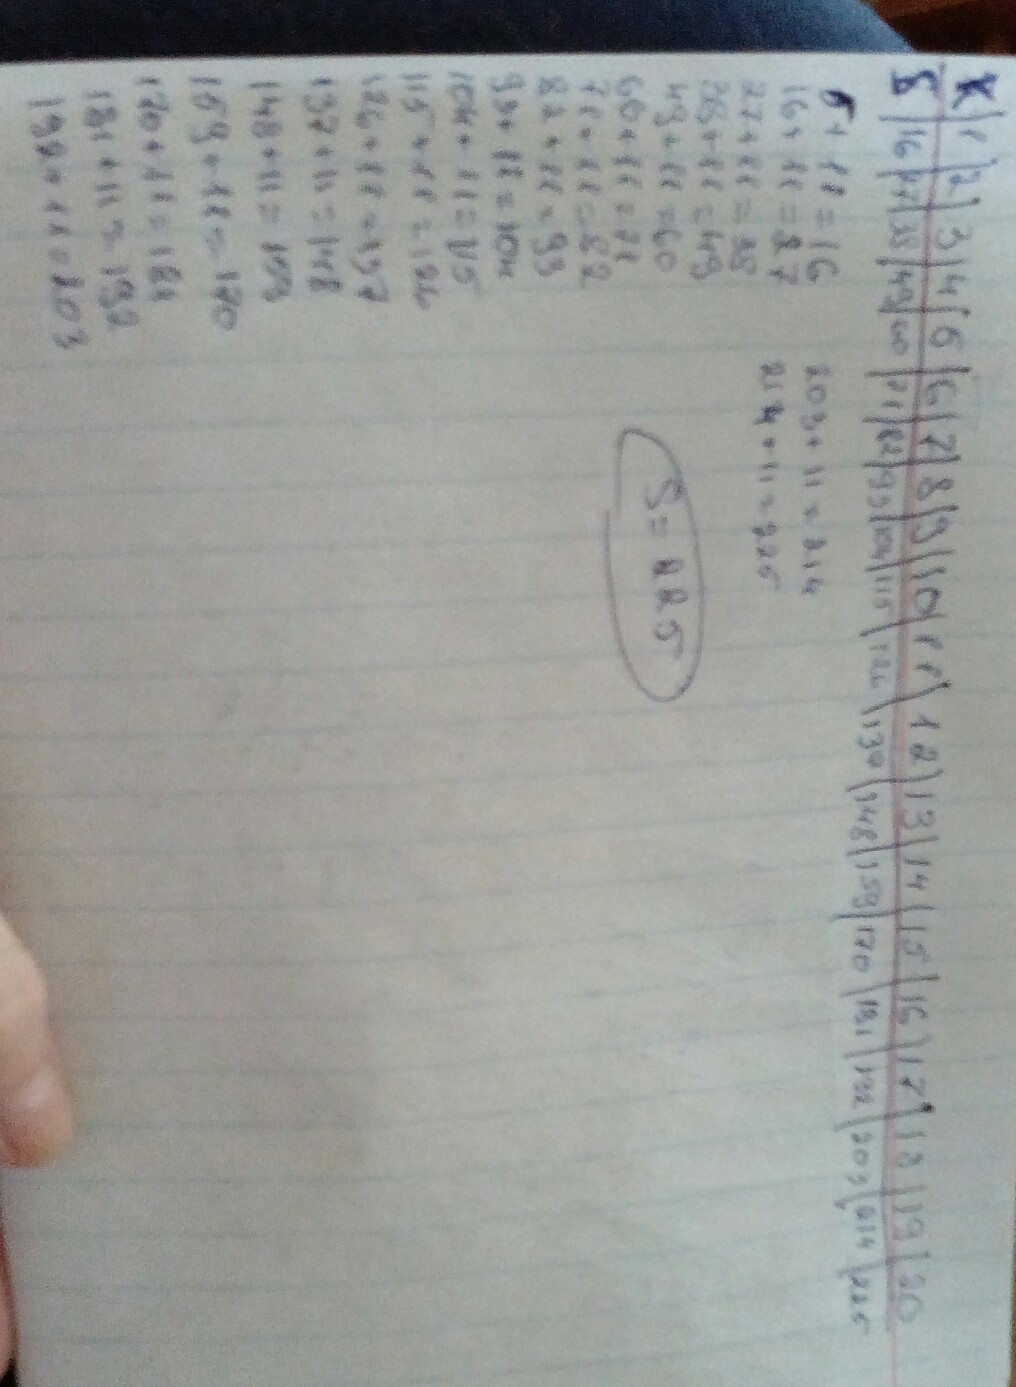 K | 1 | 2 | 3 | 4 | 5 | 6 | 7 | 8 | 9 | 10 | 11 | 12 | 13 | 14 | 15 | 16 | 17 | 18 | 19 | 20
5 | 16 | 27 | 38 | 49 | 60 | 71 | 82 | 93 | 104 | 115 | 126 | 137 | 148 | 159 | 170 | 181 | 192 | 203 | 214 | 225
5 + 11 = 16
16 + 11 = 27
27 + 11 = 38
38 + 11 = 49
49 + 11 = 60
60 + 11 = 71
71 + 11 = 82
82 + 11 = 93
93 + 11 = 104
104 + 11 = 115
115 + 11 = 126
126 + 11 = 137
137 + 11 = 148
148 + 11 = 159
159 + 11 = 170
170 + 11 = 181
181 + 11 = 192
192 + 11 = 203
203 + 11 = 214
214 + 11 = 225
S = 225